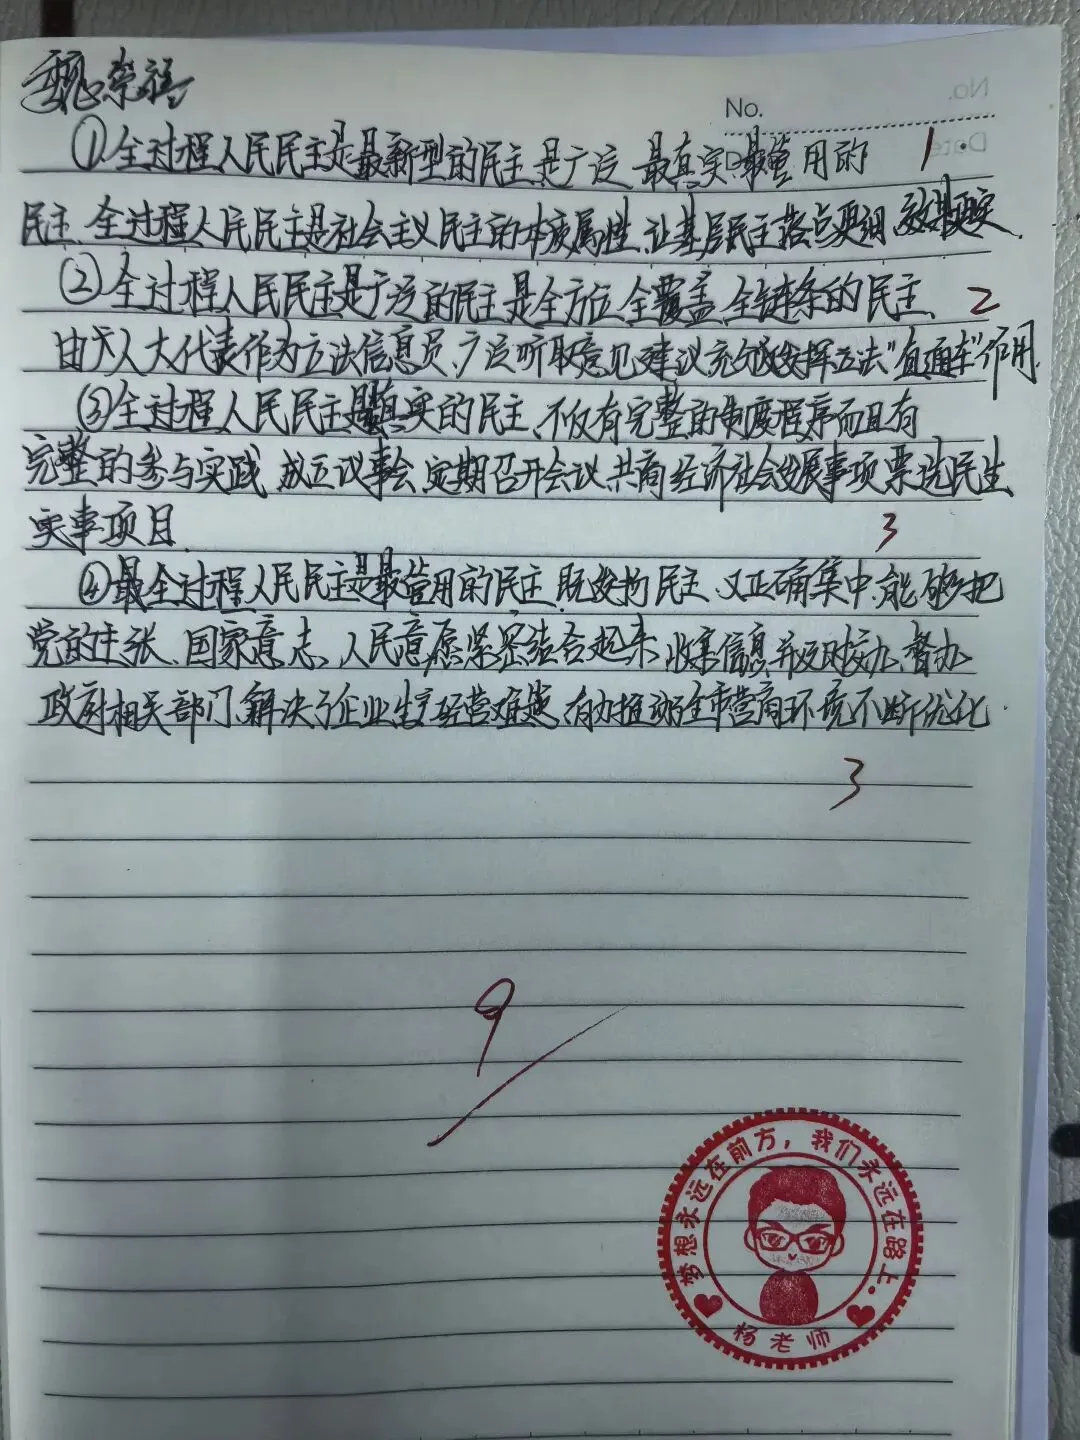 魏荣禧
No.
No.
Date
①全过程人民民主是最新型的民主是广泛 最真实最管用的 1
民主、全过程人民民主是社会主义民主的本质属性,让基层民主落点更细、效果更实.
②全过程人民民主是广泛的民主是全方位、全覆盖、全链条的民主、 2
由人大代表作为立法信息员、广泛听取意见建议充分发挥立法"直通车"作用.
③全过程人民民主是最真实的民主、不仅有完整的制度程序而且有
完整的参与实践 成立议事会、定期召开会议、共商经济社会发展事项票选民生
实事项目. 3
④全过程人民民主是最管用的民主.既发扬民主、又正确集中,能够把
党的主张、国家意志、人民意愿紧密结合起来,收集信息并及时交办、督办
政府相关部门、解决了企业生产经营难题、有力推动全市营商环境不断优化.
3
9
梦想永远在前方，我们永远在路上.
杨老师